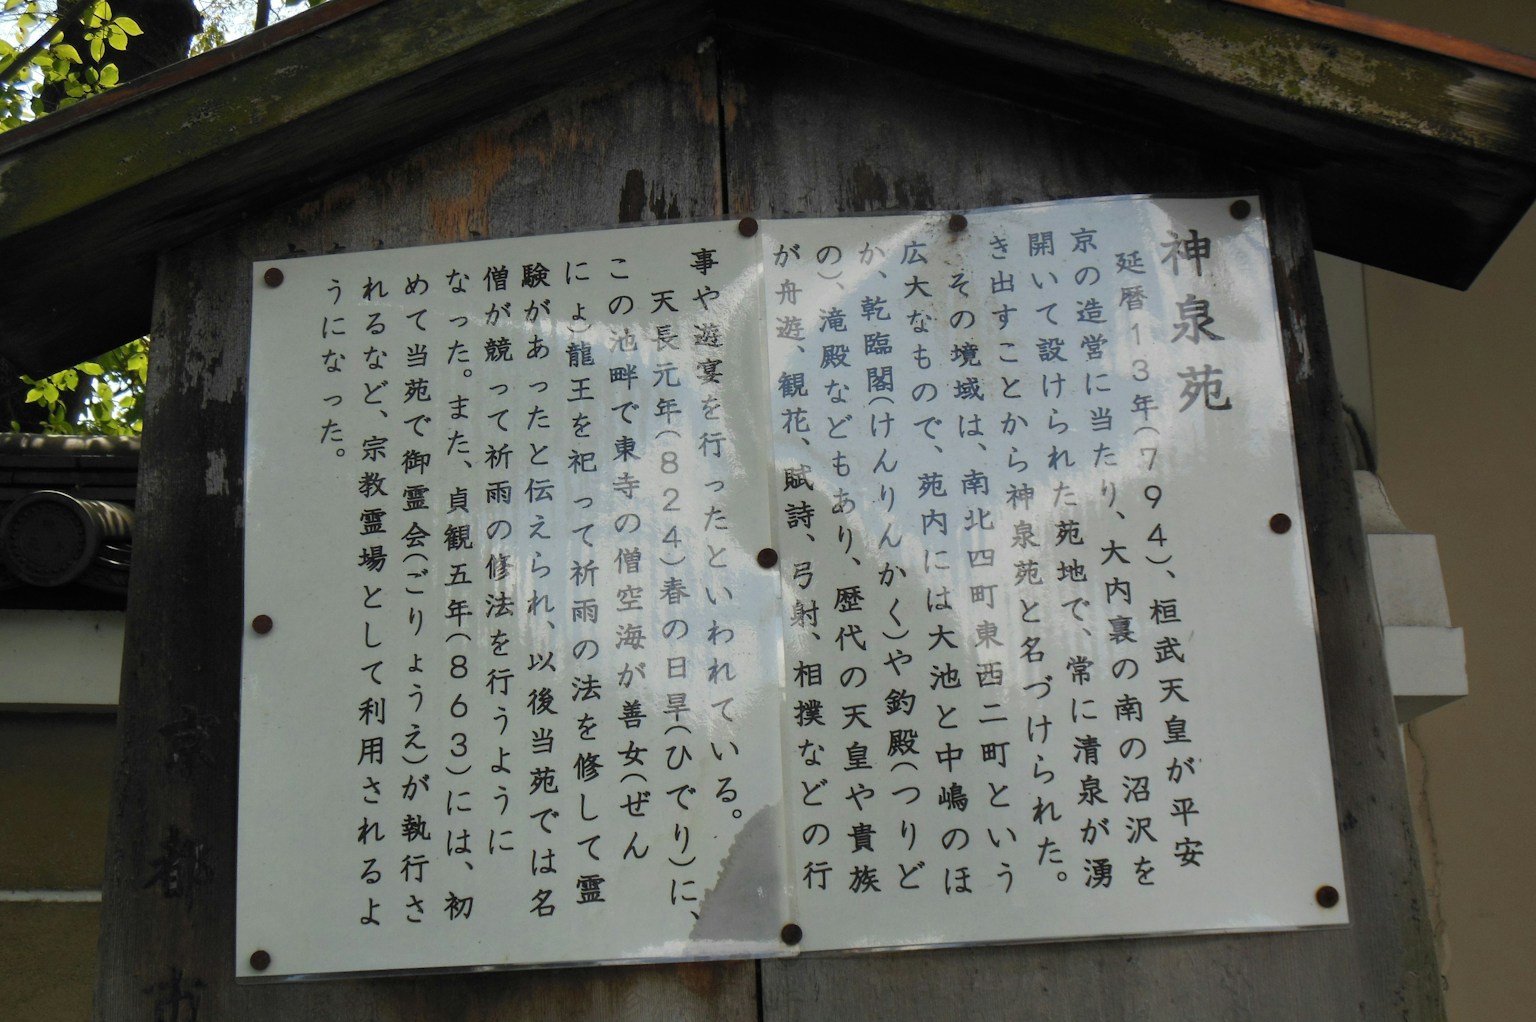 神泉苑
延暦13年(794)、桓武天皇が平安
京の造営に当たり、大内裏の南の沼沢を
開いて設けられた苑地で、常に清泉が湧
き出すことから神泉苑と名づけられた。
その境域は、南北四町東西二町という
広大なもので、苑内には大池と中嶋のほ
か、乾臨閣(けんりんかく)や釣殿(つりど
の)、滝殿などもあり、歴代の天皇や貴族
が舟遊、観花、賦詩、弓射、相撲などの行
事や遊宴を行ったといわれている。
天長元年(824)春の日早(ひでり)に、
この池畔で東寺の僧空海が善女(ぜん
にょ)龍王を祀って祈雨の法を修して霊
験があったと伝えられ、以後当苑では名
僧が競って祈雨の修法を行うように
なった。また、貞観五年(863)には、初
めて当苑で御霊会(ごりょうえ)が執行さ
れるなど、宗教霊場として利用されるよ
うになった。
京都市